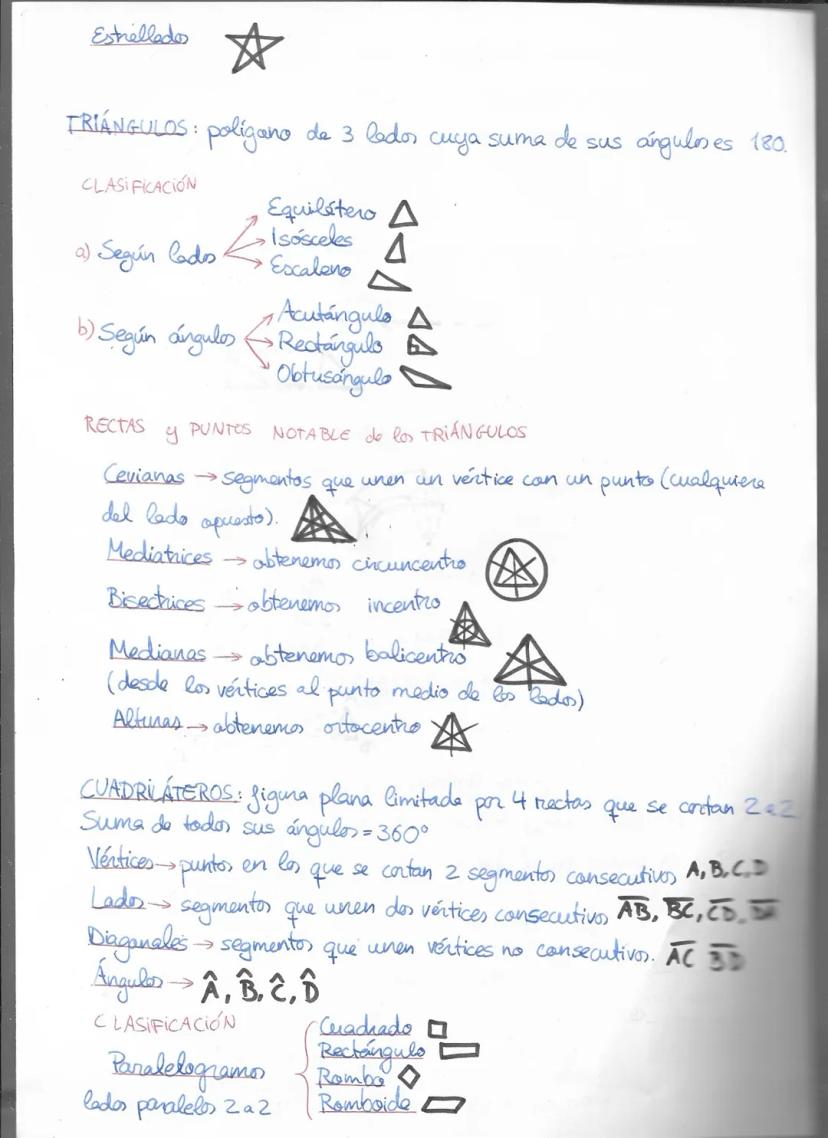 Estrellados
TRIÁNGULOS: polígono de 3 lados cuya suma de sus ángulos es 180.
CLASIFICACIÓN
a) Según lados
Equilátero
Isósceles
Escaleno
b) Según ángulos
Acutángulo
Rectángulo
Obtusángulo
RECTAS y PUNTOS NOTABLE de los TRIÁNGULOS
Cevianas → segmentos que unen un vértice con un punto (cualquiera
del lado opuesto).
Mediatrices → obtenemos circuncentro
Bisectrices → obtenemos incentro
Medianas → obtenemos balicentro
(desde los vértices al punto medio de los lados)
Alturas → obtenemos ortocentro
CUADRILÁTEROS: figura plana limitada por 4 rectas que se cortan 2 a 2
Suma de todos sus ángulos = 360°
Vértices → puntos en los que se cortan 2 segmentos consecutivos A, B, C, D
Lados → segmentos que unen dos vértices consecutivos A̅B̅, B̅C̅, C̅D̅, D̅A̅
Diagonales → segmentos que unen vértices no consecutivos. A̅C̅ B̅D̅
Ángulos → Â, B̂, Ĉ, D̂
CLASIFICACIÓN
Paralelogramos
lados paralelos 2 a 2
Cuadrado
Rectángulo
Rombo
Romboide